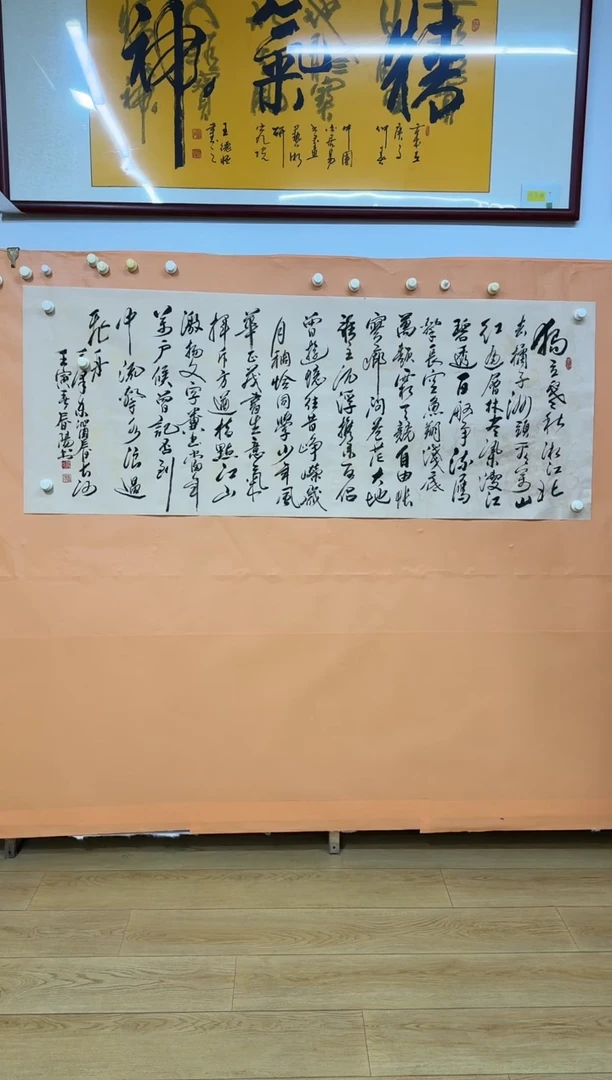 精氣神
獨立寒秋湘江北
去橘子洲頭看萬山
紅遍層林盡染漫江
碧透百舸爭流鷹
擊長空魚翔淺底
萬類霜天競自由悵
寥廓問蒼茫大地
誰主沉浮攜來百侶
曾遊憶往昔崢嶸歲
月稠恰同學少年風
華正茂書生意氣
揮斥方遒指點江山
激揚文字糞土當年
萬戶侯曾記否到
中流擊水浪遏
飛舟
毛澤東沁園春長沙
壬寅年春書